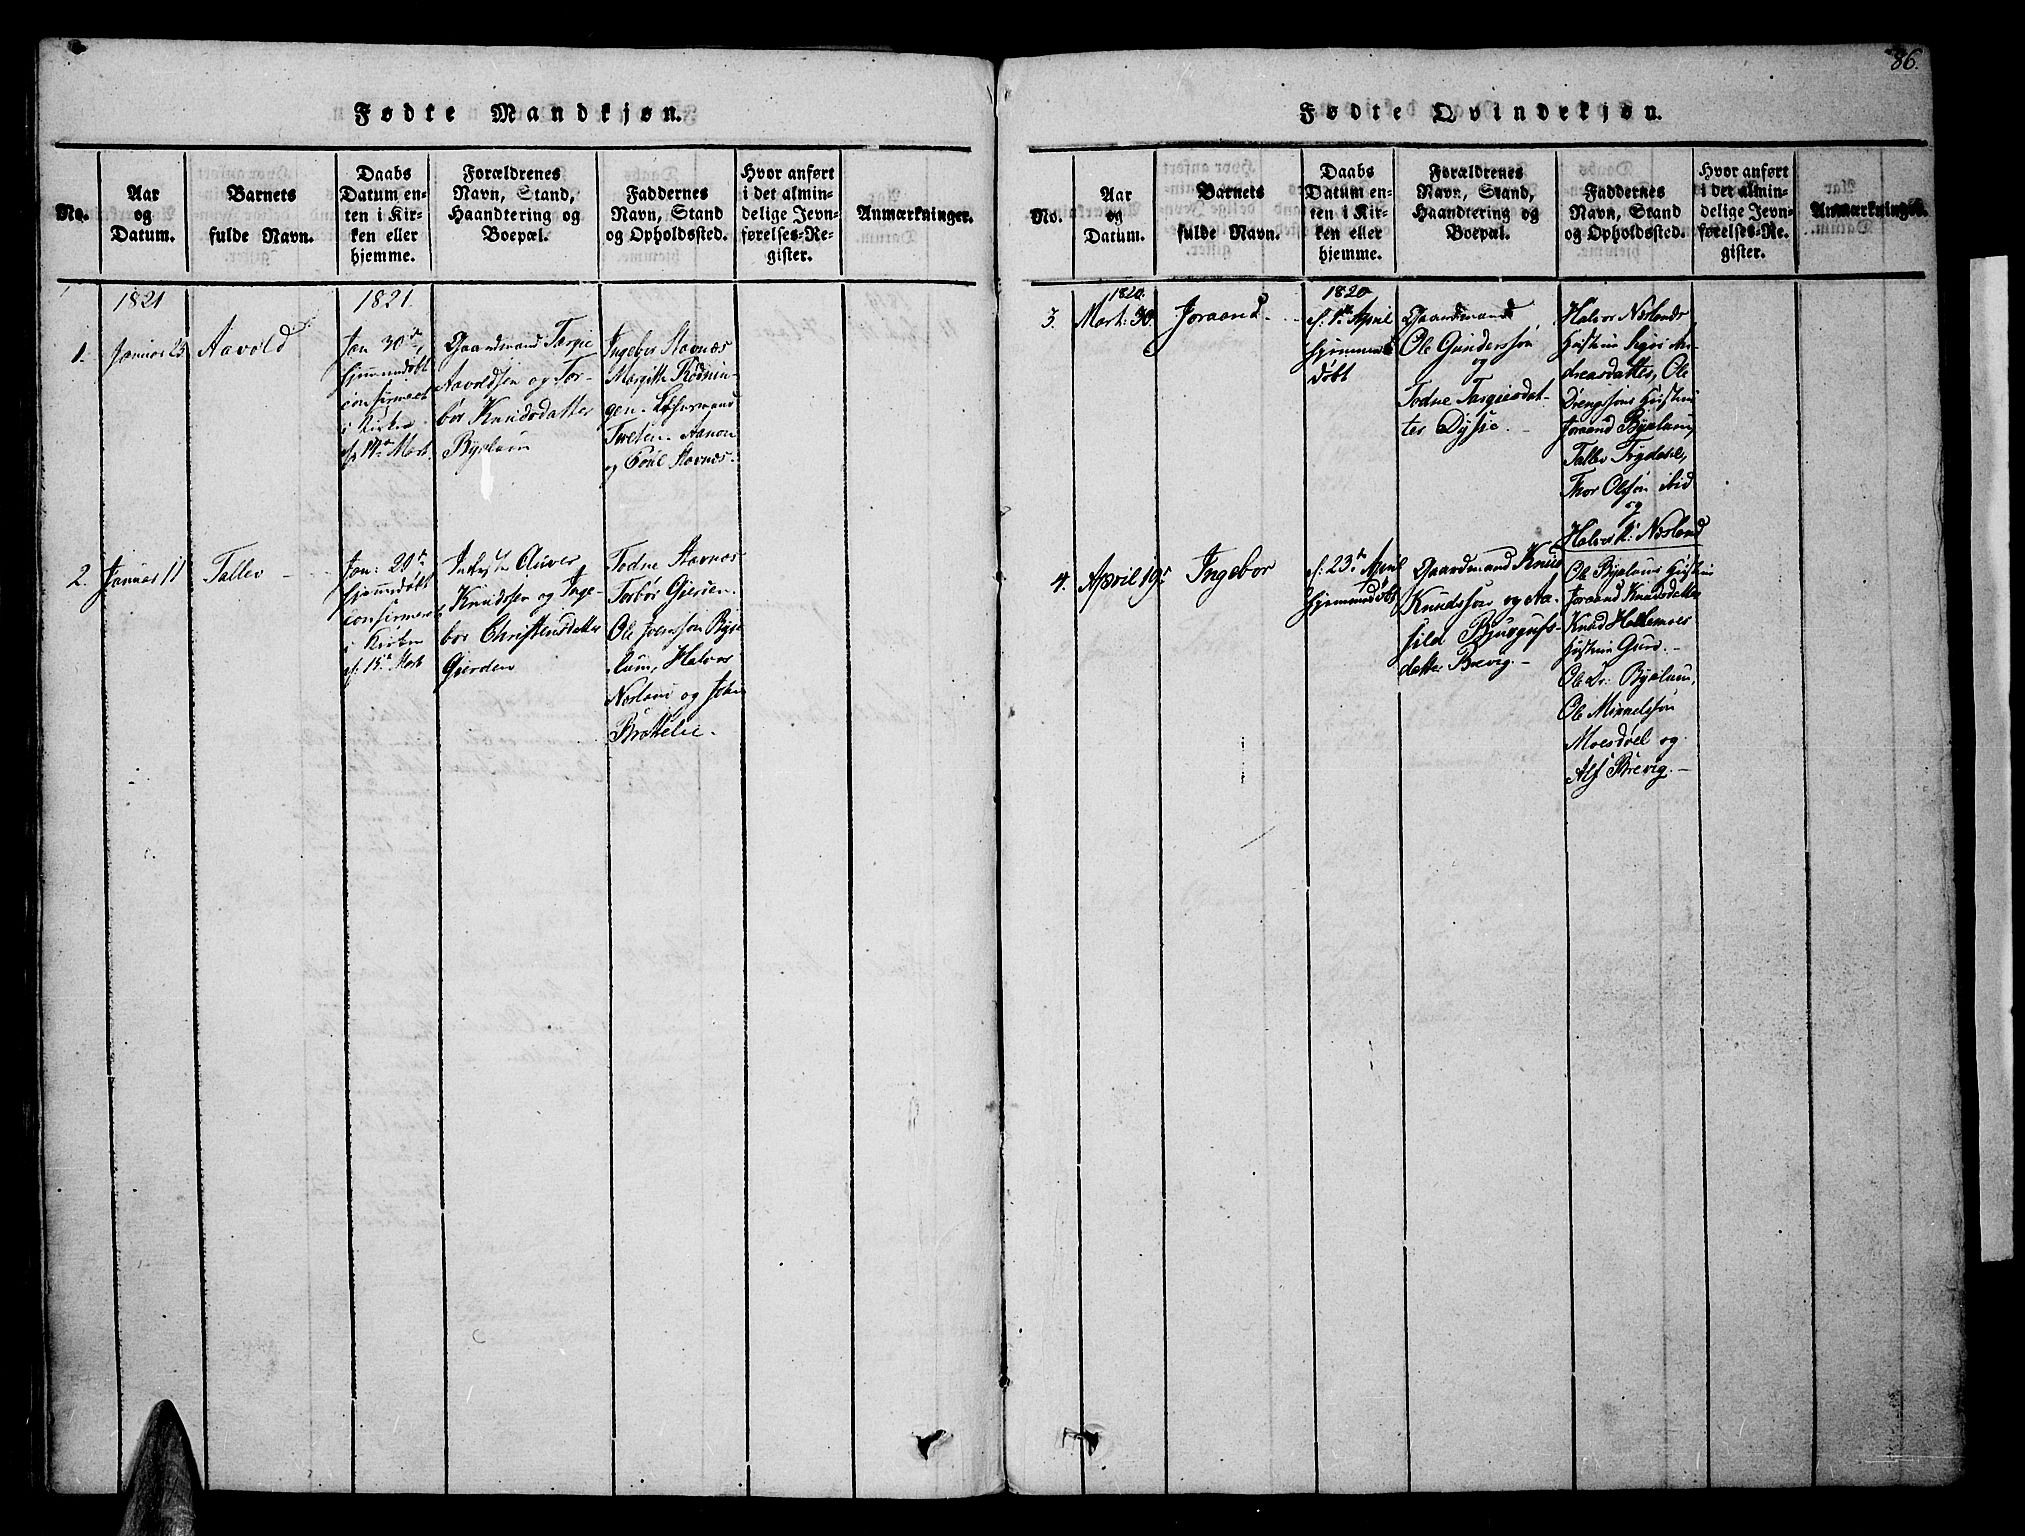 86.
Fødte Mandkjøn.
No.
Aar
og
Datum.
Barnets
fulde Navn.
Daabs
Datum en-
ten i Kir-
ken eller
hjemme.
Forældrenes
Navn, Stand,
Haandtering og
Boepæl.
Faddernes
Navn, Stand
og Opholdssted.
Hvor anført
i det almin-
delige Jevn-
førelses-Re-
gister.
Anmærkninger.
1821
1821
1.
Januar 25
Aavold
Jan 30te
hjemmedøbt
confirmeret
i Kirken
d. 11te Mart.
Gaardmand Targie
Aavoldsen og Tor-
bør Knudsdatter
Byelum
Ingebor Stavnæs
Margith Rødnin-
gen.
Tveten. Aanon
og Poul Stavnæs.
2.
Januar 11
Tallev
Jan: 20de
hjemmedøbt
confirmeret
i Kirken
d. 15de Mart
Oliver
Knudssen og Inge-
bor Christensdatter
Gierden
Todne Stavnæs
Torbør Gierden.
Ole Svensson Bye-
lum, Halvor
Nørland og John
Brottelie.
Fødte Qvindekjøn.
No.
Aar
og
Datum.
Barnets
fulde Navn.
Daabs
Datum en-
ten i Kir-
ken eller
hjemme.
Forældrenes
Navn, Stand,
Haandtering og
Boepæl.
Faddernes
Navn, Stand
og Opholdssted.
Hvor anført
i det almin-
delige Jevn-
førelses-Re-
gister.
Anmærkninger.
1820.
1820
3.
Mart. 30.
Joraand.
d. 1te April
hjemme-
døbt
Gaardmand
Ole Gundersøn
og
Todne Targiesdat-
ter Dysie.
Halvor Nørlands
Hustrue Sigri An-
dreasdatter, Ole
Drengsøns Hustrue
Joraand Byelum,
Tallev Trydahl,
Thor Olsøn ibid
og
Halvor K: Nørland
4.
April 19de
Ingebor
d. 23de April
hjemmedøbt
Gaardmand Knud
Knudssøn og Aa-
sild Bjurgufs-
datter Brevig.
Ole Byelums Hustrue
Joraand Knudsdatter
Knud Hellemoes
Hustrue Guro.
Ole Dr: Byelum,
Ole Mikkelssøn
Moesdøel og
Alf Brevig.